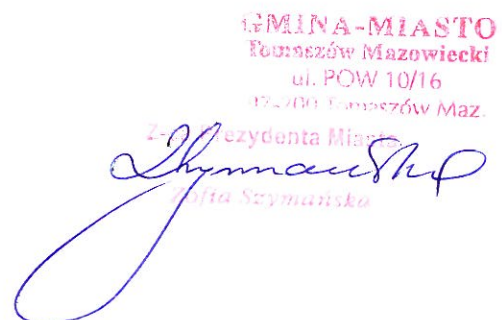 GMINA-MIASTO
Tomaszów Mazowiecki
ul. POW 10/16
97-200 Tomaszów Maz.
Z-ca Prezydenta Miasta
Szymańska
Zofia Szymańska